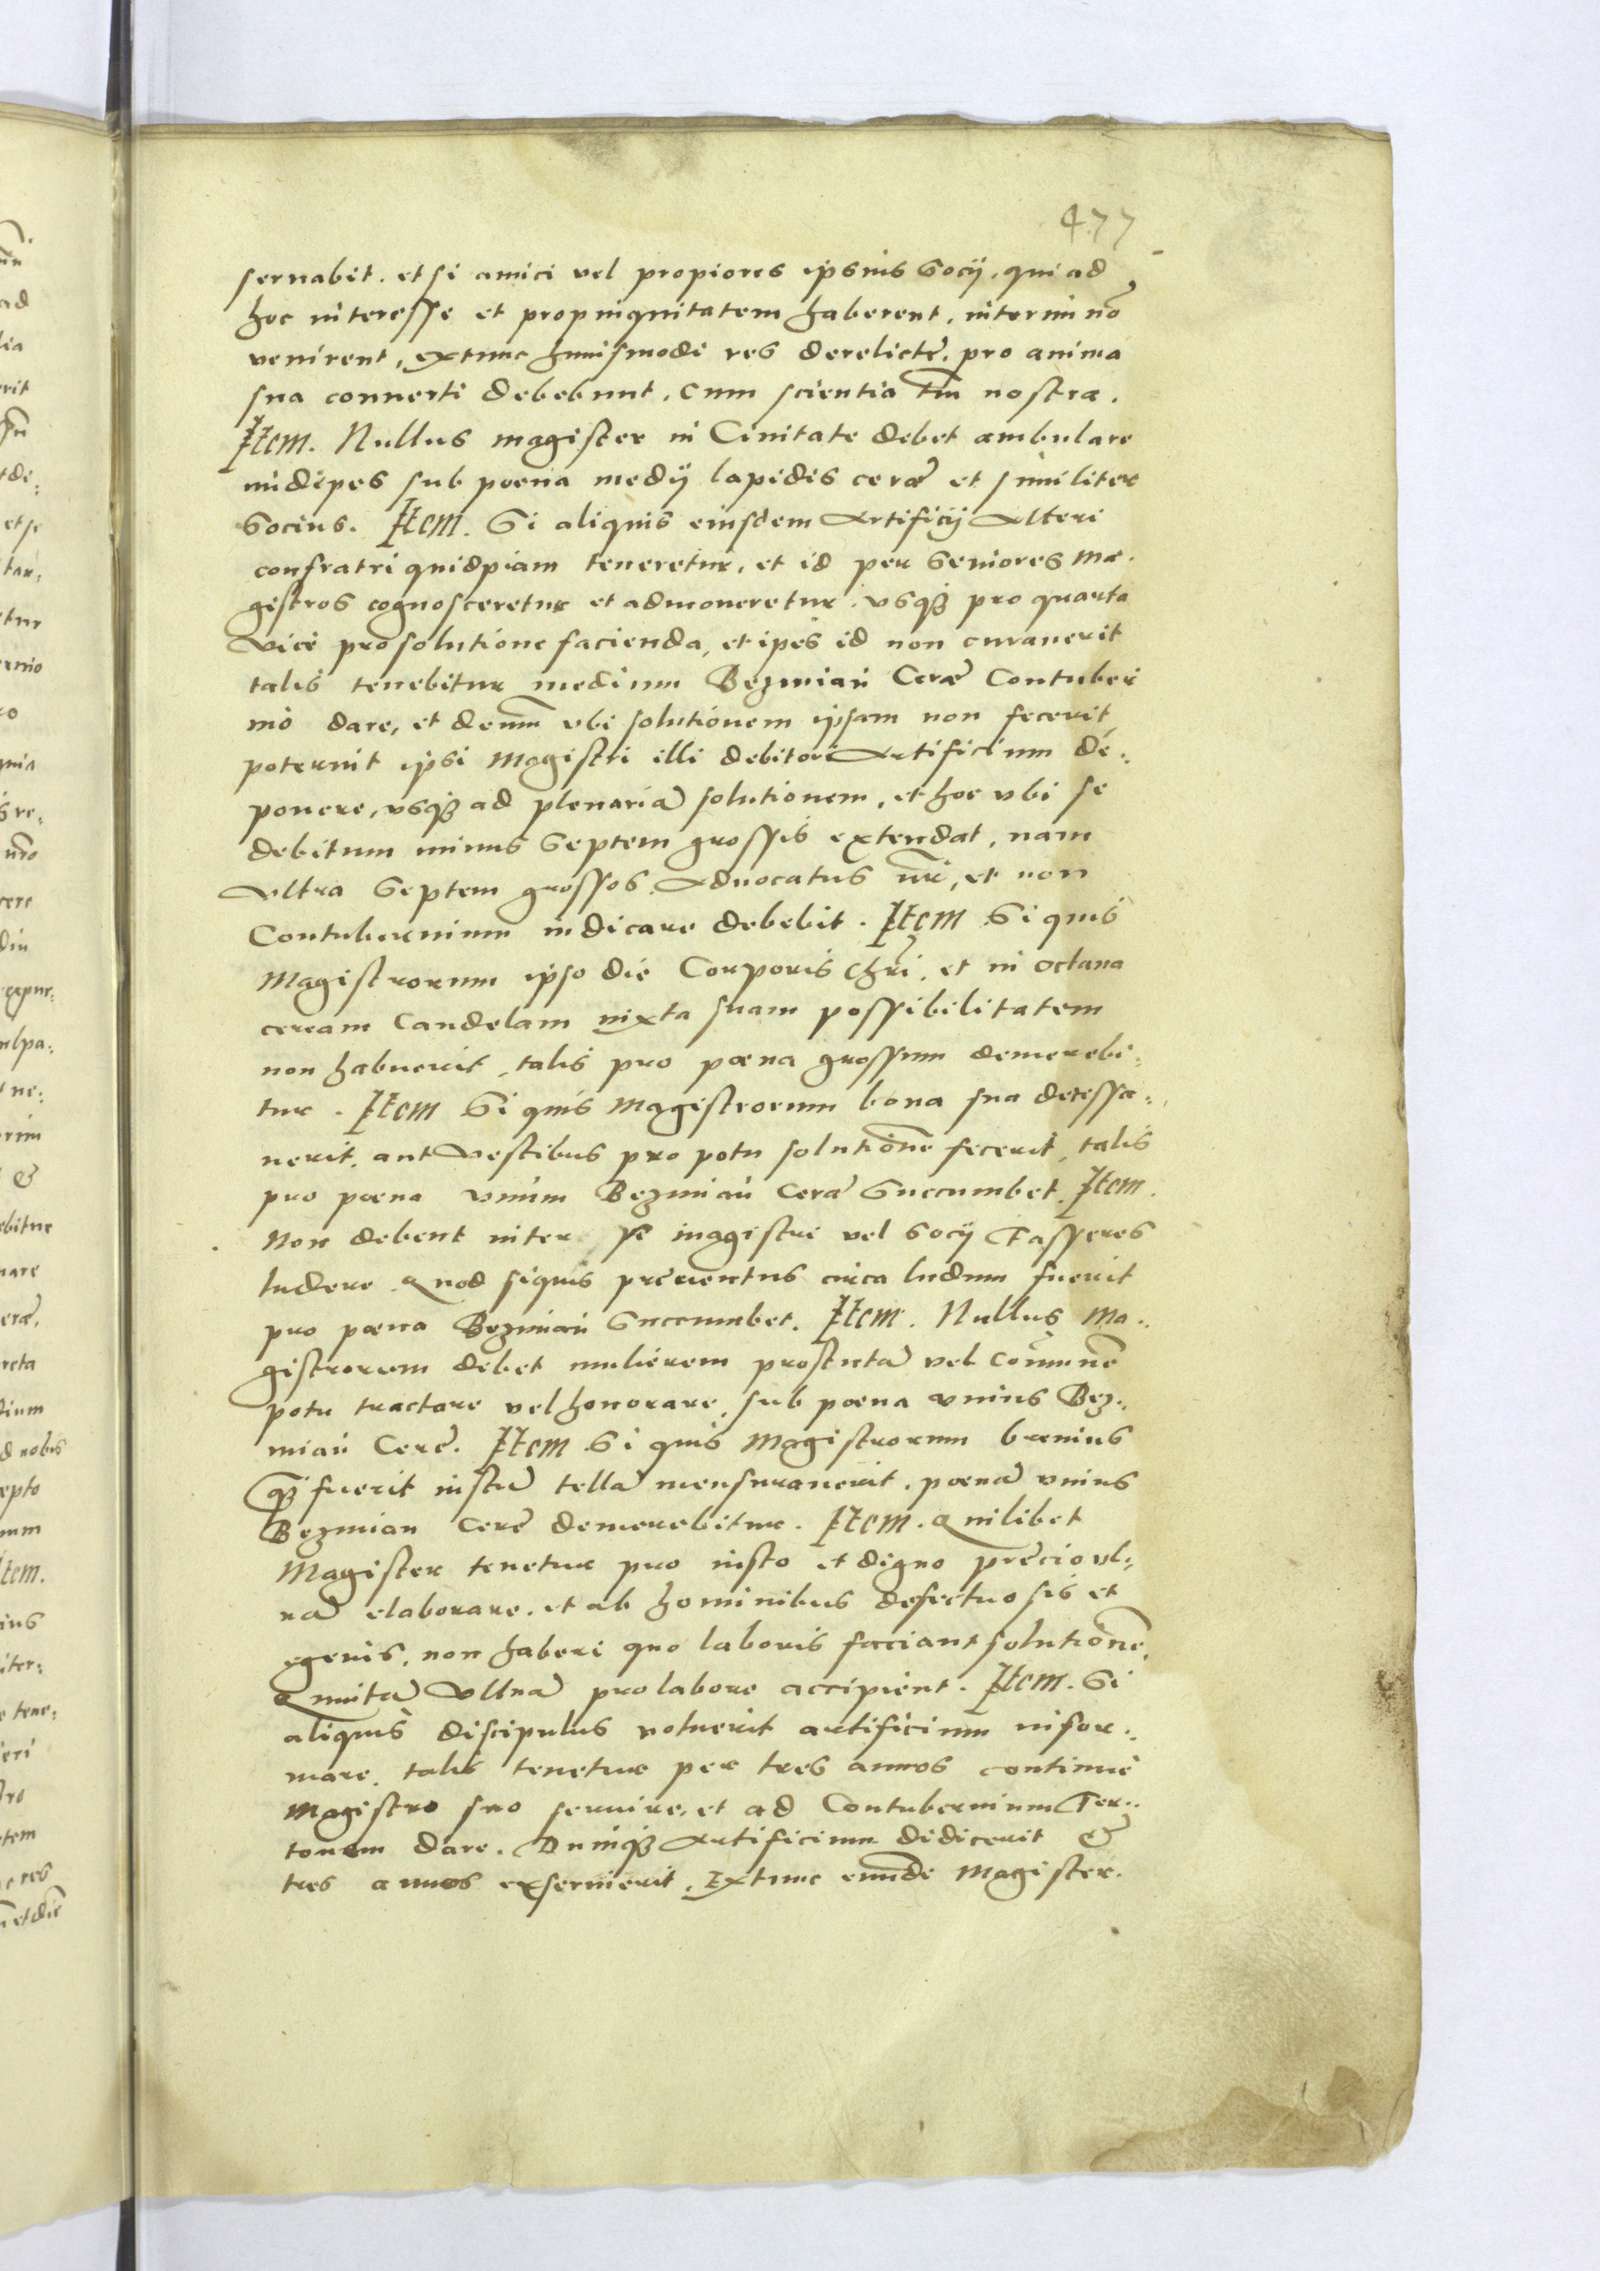 477
seruabit. et si amici vel propiores ipsius Socij. qui ad
hoc interesse et propinquitatem haberent, interim nõ
venirent, extunc huiusmodi res derelictę, pro anima
sua conuerti debebunt. cum scientia tñ nostra.
Item. Nullus magister in Ciuitate debet ambulare
nudipes sub poena medij lapidis cerę et similiter
Socius. Item. Si aliquis eiusdem Artificij Alteri
confratri quidpiam teneretur, et id per Seniores Ma-
gistros cognosceretur et admoneretur. vsq3 pro quarta
vice pro solutione facienda, et ipse id non curauerit
talis tenebitur medium Bezmiań Cerę Contuber
nio dare, et demũ vbi solutionem ipsam non fecerit
poterunt ipsi Magistri illi debitori Artificium de-
ponere, vsq3 ad plenariã solutionem, et hoc vbi se
debitum minus Septem grossis extendat, nam
vltra Septem grossos. Aduocatus nr̃i, et non
Contubernium iudicare debebit. Item Si quis
Magistrorum ipso die Corporis Chr̃i. et in octaua
ceream Candelam iuxta suam possibilitatem
non habuerit, talis pro poena grossum demerebi-
tur. Item Si quis Magistrorum bona sua detessa-
uerit. aut vestibus pro potu solutionẽ fecerit, talis
pro poena vnum Bezmiań Cerę Succumbet. Item.
Non debent inter se magistri vel Socij Tasseres
ludere. Quod siquis preuentus circa ludum fuerit
pro poena Bezmiań Succumbet. Item. Nullus Ma-
gistrorum debet mulierem prostutã vel Cõmunẽ
potu tractare vel honorare, sub poena vnius Bez-
miań Cerę. Item Si quis Magistrorum breuius
q3 fuerit iustũ tellã mensurauerit. poenã vnius
Bezmian Cerę demerebitur. Item. Quilibet
Magister tenetur pro iusto et digno precio vl-
nã elaborare. et ab hominibus defectuosis et
egenis, non haberi quo laboris faciant solutionẽ.
Quintã Vlnã pro labore accipient. Item. Si
aliquis discipulus voluerit artificium infor-
mare. talis tenetur per tres annos continue
Magistro suo seruire. et ad Contubernium Fer-
tonem dare. Dumq3 Artificium didicerit &
tres annos exseruierit. Extunc eundẽ Magister.